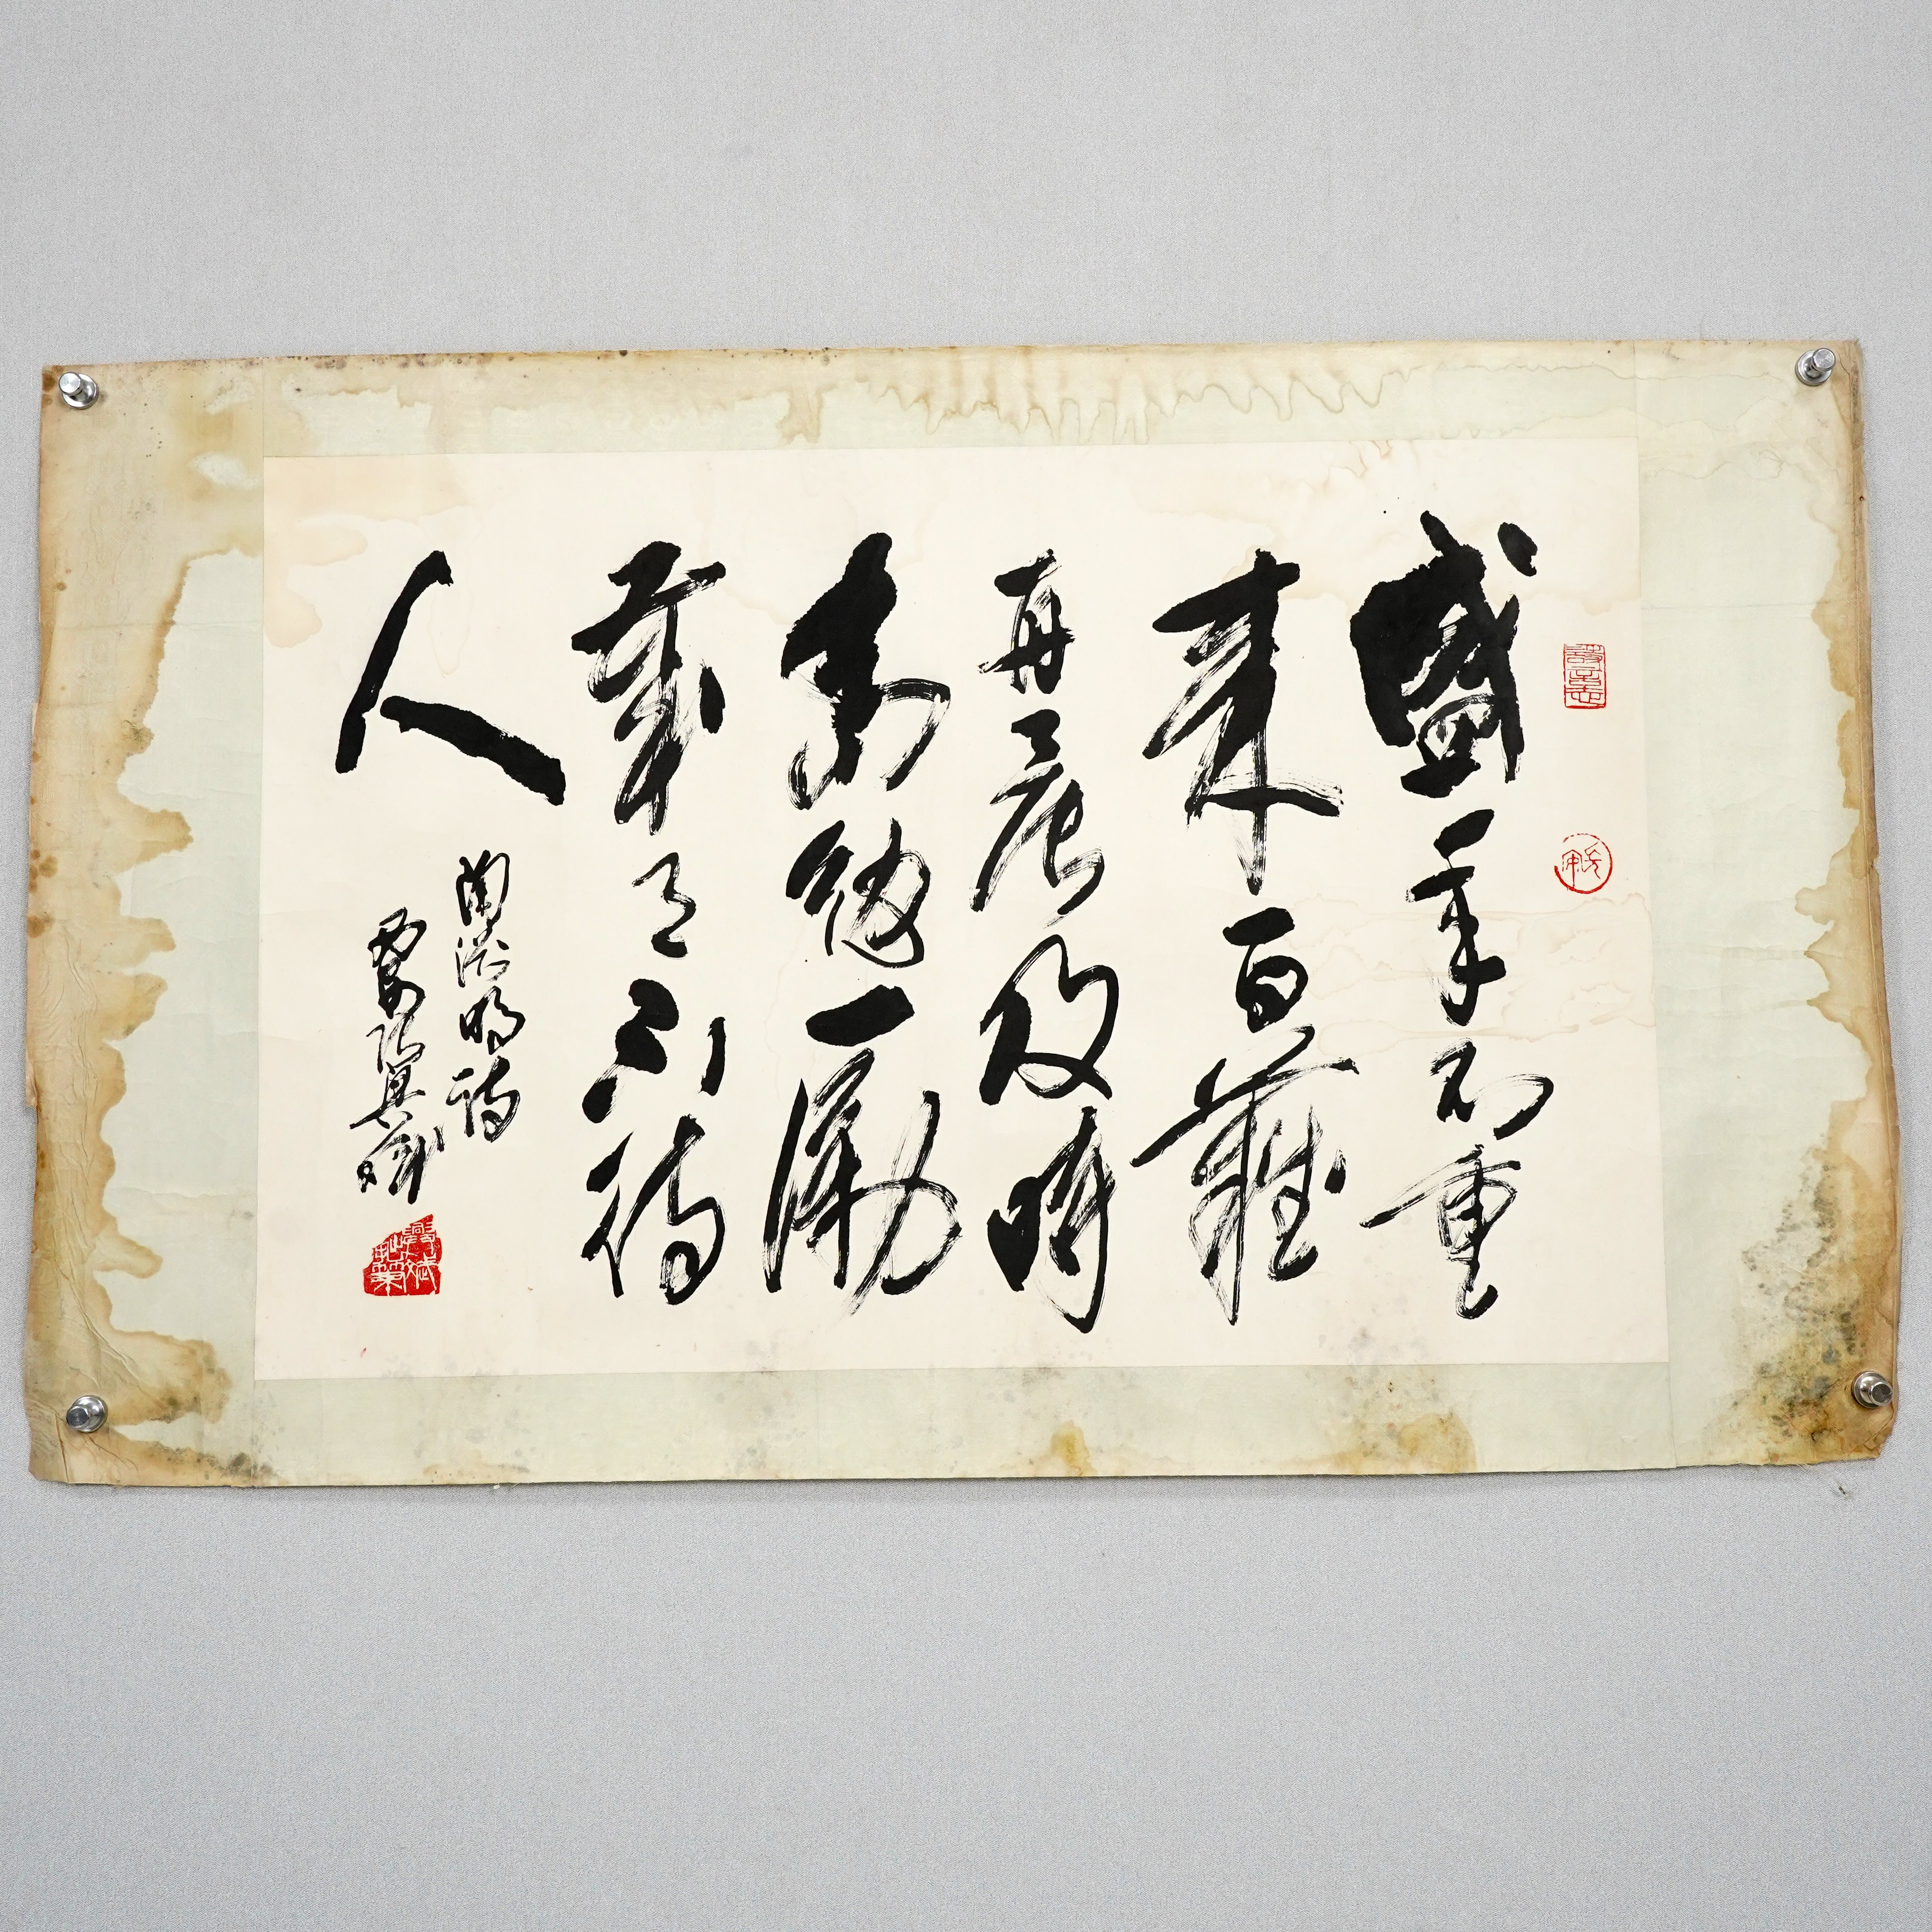 盛年不重
來一日難
再晨及時
當勉勵
歲月不待
人
陶淵明詩